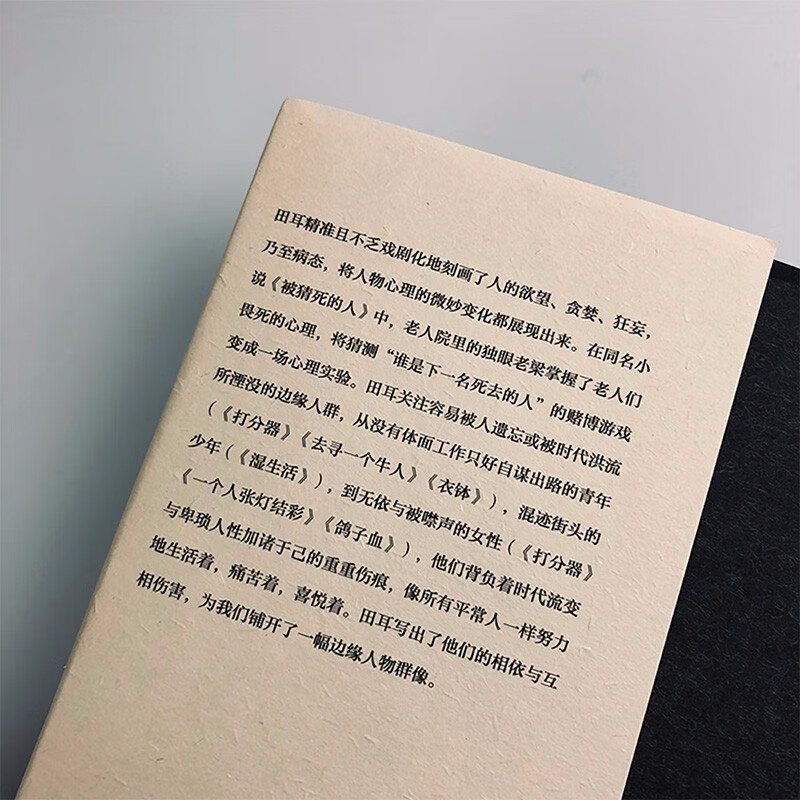 田耳精准且不乏戏剧化地刻画了人的欲望、贪婪、狂妄，
乃至病态，将人物心理的微妙变化都展现出来。在同名小
说《被猜死的人》中，老人院里的独眼老梁掌握了老人们
畏死的心理，将猜测“谁是下一名死去的人”的赌博游戏
变成一场心理实验。田耳关注容易被人遗忘或被时代洪流
所湮没的边缘人群，从没有体面工作只好自谋出路的青年
（《打分器》《去寻一个牛人》《衣钵》），混迹街头的
少年（《湿生活》），到无依与被噤声的女性（《打分器》
《一个人张灯结彩》《鸽子血》），他们背负着时代流变
与卑琐人性加诸于己的重重伤痕，像所有平常人一样努力
地生活着，痛苦着，喜悦着。田耳写出了他们的相依与互
相伤害，为我们铺开了一幅边缘人物群像。